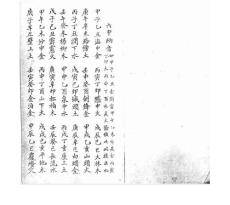 甲子乙丑海中金 丙寅丁卯爐中火 戊辰己巳大林木
庚午辛未路傍土 壬申癸酉劍鋒金 甲戌乙亥山頭火
丙子丁丑澗下水 戊寅己卯城頭土 庚辰辛巳白鑞金
壬午癸未楊柳木 甲申乙酉泉中水 丙戌丁亥屋上土
戊子己丑霹靂火 庚寅辛卯松柏木 壬辰癸巳長流水
甲午乙未沙中金 丙申丁酉山下火 戊戌己亥平地木
庚子辛丑壁上土 壬寅癸卯金泊金 甲辰乙巳覆燈火